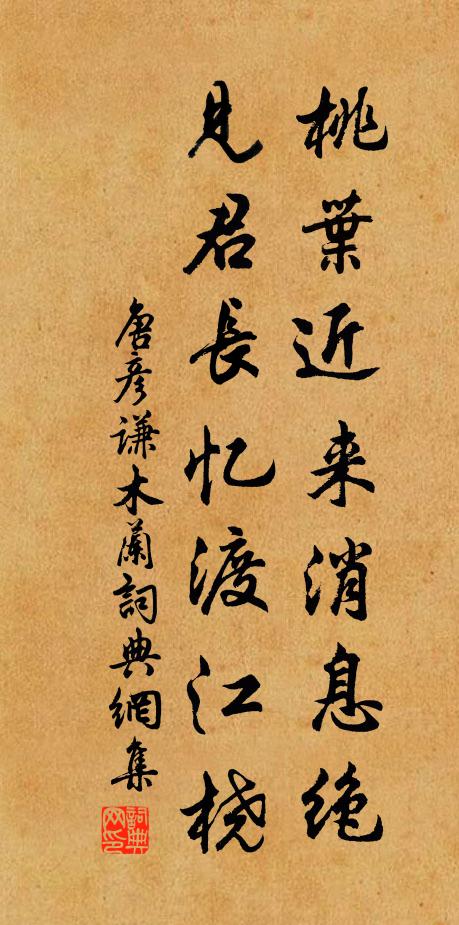 桃葉近来消息绝
見君長忆渡江桡
唐彦谦木蘭詞典網集
詞典网印